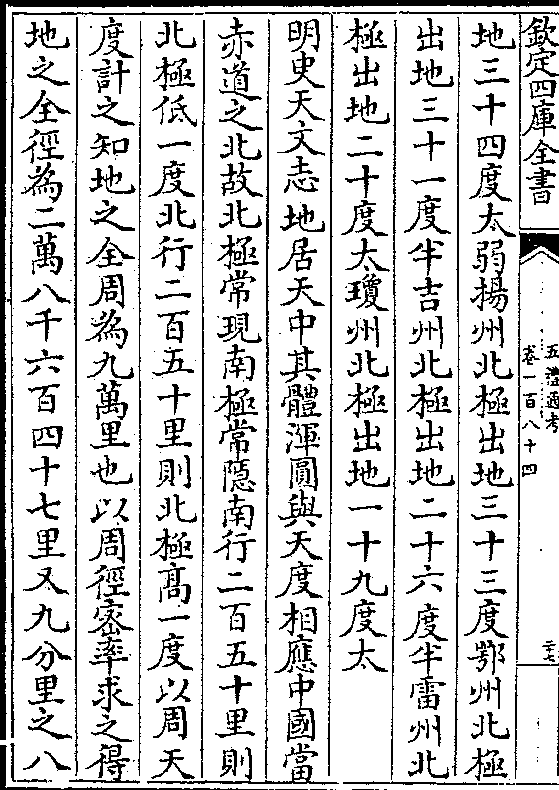 欽定四庫全書
五禮通考
卷一百八十四
地三十四度太弱揚州北極出地三十三度鄂州北極
出地三十一度半吉州北極出地二十六度半雷州北
極出地二十度太瓊州北極出地一十九度太
明史天文志地居天中其體渾圓與天度相應中國當
赤道之北故北極常現南極常隱南行二百五十里則
北極低一度北行二百五十里則北極高一度以周天
度計之知地之全周為九萬里也以周徑密率求之得
地之全徑為二萬八千六百四十七里又九分里之八